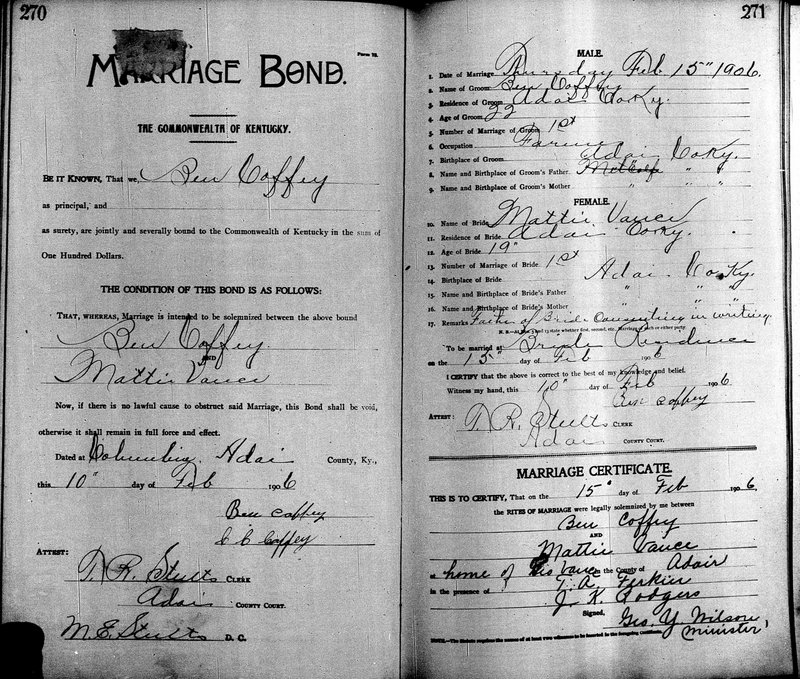 270
Form 78.
MARRIAGE BOND.
THE COMMONWEALTH OF KENTUCKY.
BE IT KNOWN, That we, Ben Coffey
as principal, and
as surety, are jointly and severally bound to the Commonwealth of Kentucky in the sum of
One Hundred Dollars.
THE CONDITION OF THIS BOND IS AS FOLLOWS:
THAT, WHEREAS, Marriage is intended to be solemnized between the above bound
Ben Coffey
AND
Mattie Vance
Now, if there is no lawful cause to obstruct said Marriage, this Bond shall be void,
otherwise it shall remain in full force and effect.
Dated at Columbia, Adair County, Ky.,
this 10" day of Feb 1906
Ben Coffey
C C Coffey
ATTEST:
T. R. Stults CLERK
Adair COUNTY COURT.
M. E. Stults D. C.
271
MALE.
1. Date of Marriage Thursday Feb 15" 1906.
2. Name of Groom Ben Coffey
3. Residence of Groom Adair Co Ky.
4. Age of Groom 22
5. Number of Marriage of Groom 1st
6. Occupation Farmer
7. Birthplace of Groom Adair Co Ky.
8. Name and Birthplace of Groom's Father Metcalfe " "
9. Name and Birthplace of Groom's Mother " "
FEMALE.
10. Name of Bride Mattie Vance
11. Residence of Bride Adair Co Ky.
12. Age of Bride 19"
13. Number of Marriage of Bride 1st
14. Birthplace of Bride Adair Co Ky.
15. Name and Birthplace of Bride's Father " " "
16. Name and Birthplace of Bride's Mother " " "
17. Remarks Father of Bride Consenting in writing.
N. B.—At 5 and 13 state whether first, second, etc., Marriage of each or either party.
To be married at Bride Residence
on the 15" day of Feb 1906
I CERTIFY that the above is correct to the best of my knowledge and belief.
Witness my hand, this 10" day of Feb 1906
Ben Coffey
ATTEST:
T. R. Stults CLERK
Adair COUNTY COURT.
MARRIAGE CERTIFICATE.
THIS IS TO CERTIFY, That on the 15" day of Feb 1906,
the RITES OF MARRIAGE were legally solemnized by me between
Ben Coffey
AND
Mattie Vance
at home of Vance in the County of Adair
in the presence of T. A.
J. K. Rodgers
Signed, Geo. Y. Wilson
minister,
NOTE.—The Statute requires the names of at least two witnesses to be inserted in the foregoing Certificate.